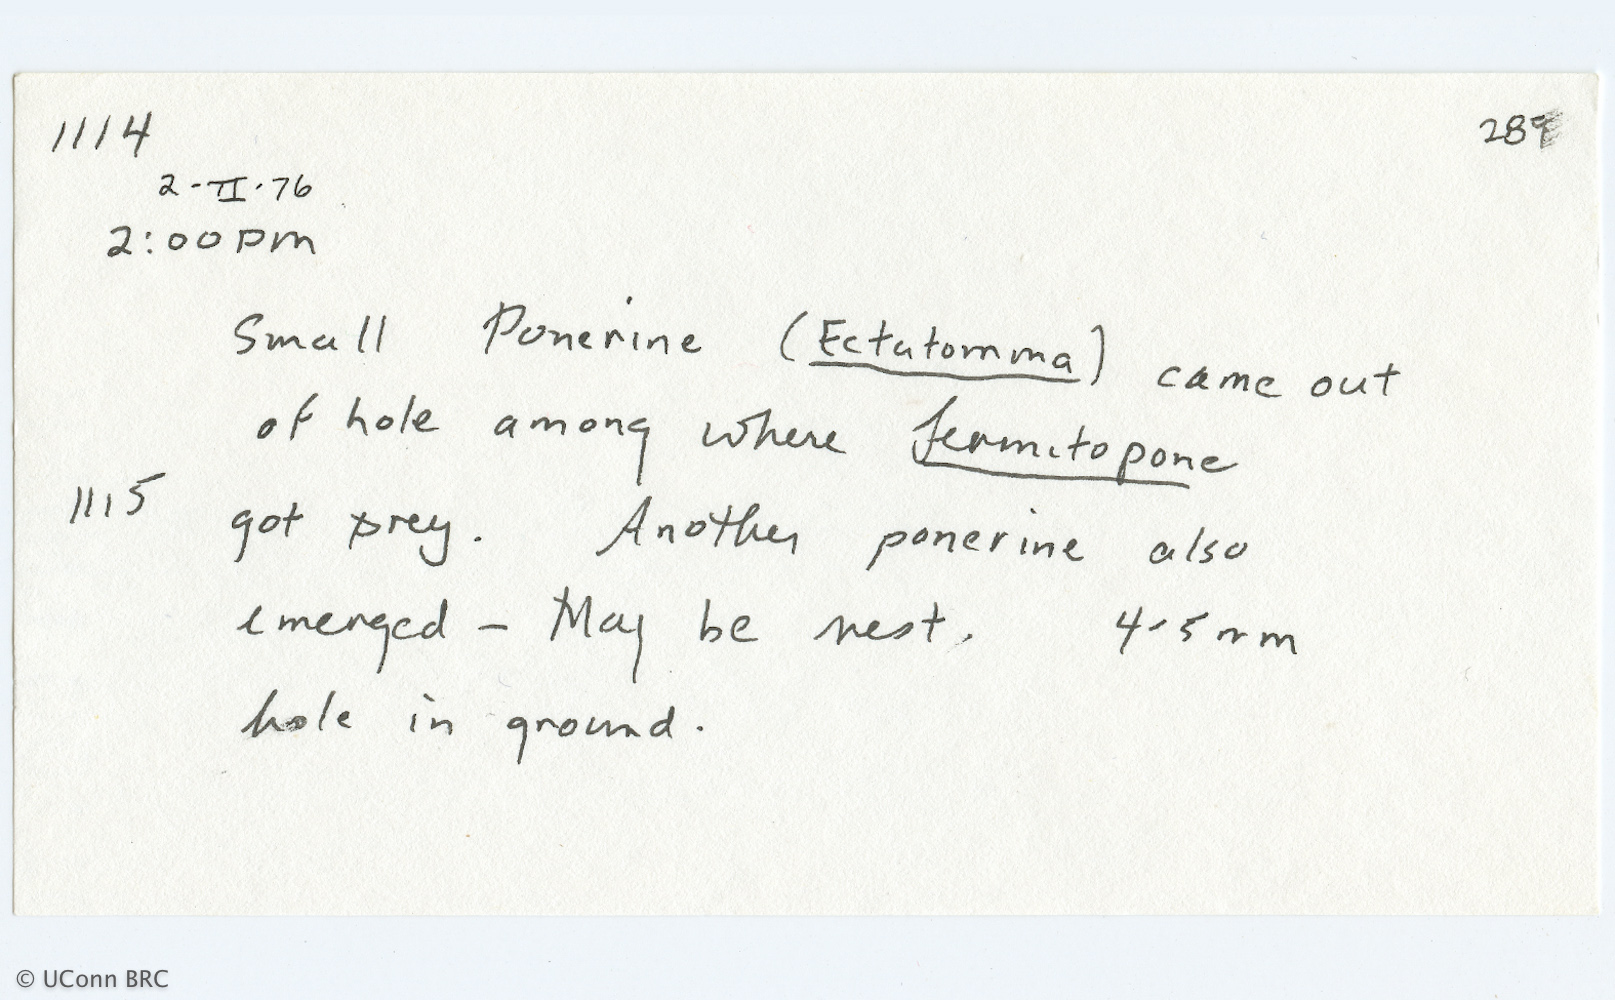 1114
2-II-76
2:00 pm
Small Ponerine (Ectatomma) came out
of hole among where Termitopone
1115 got prey. Another ponerine also
emerged – May be nest. 4-5 mm
hole in ground.
© UConn BRC